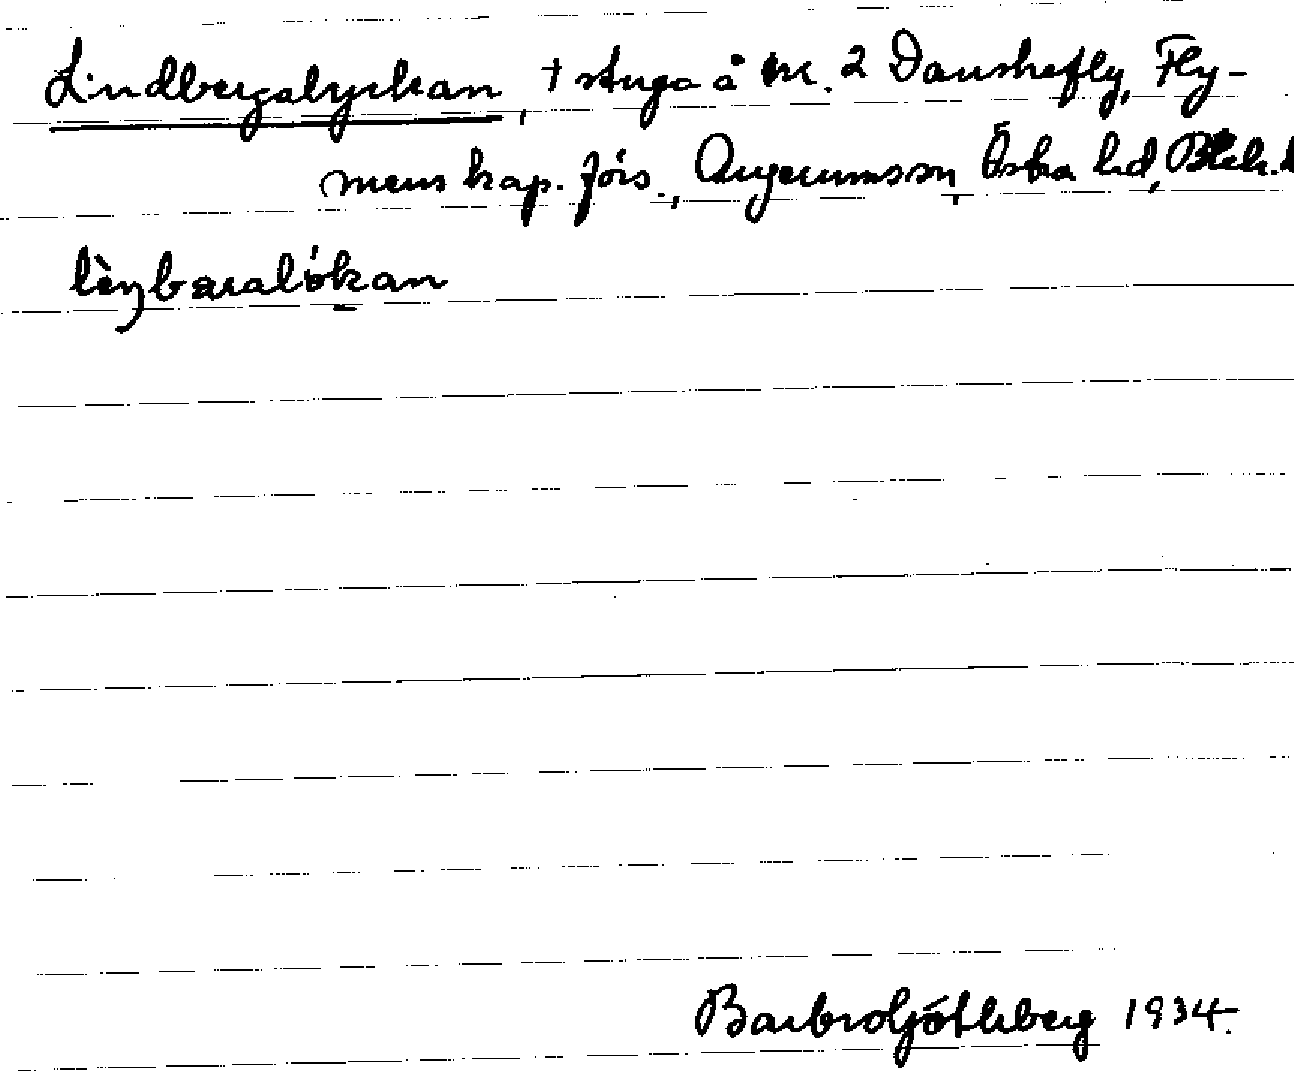 Lindbergslyckan, † stuga å nr. 2 Danskefly, Fly-
mens kap. förs., Augerumssn, Östra hd, Blek. l
lèŋbæralókan
Barbro Götleberg 1934.